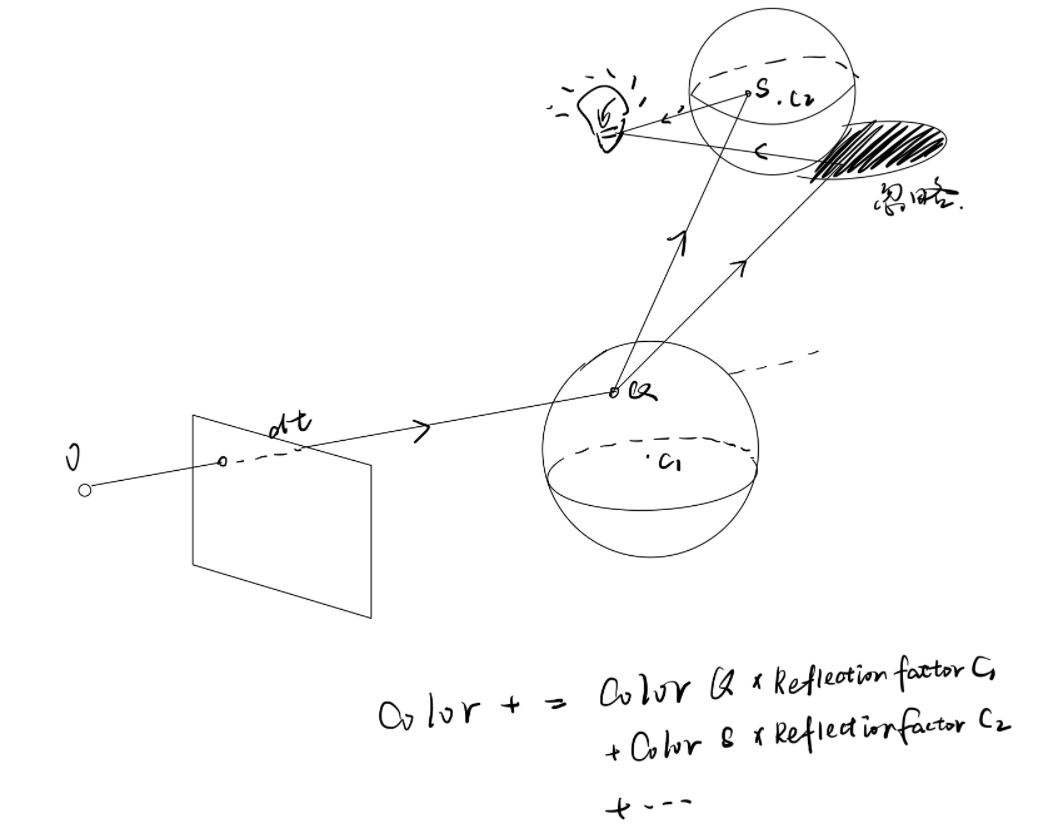 S
.C₂
忽略.
Q
dt
O
.C₁
Color += Color Q × Reflection factor C₁
+ Color S × Reflection factor C₂
+ ---